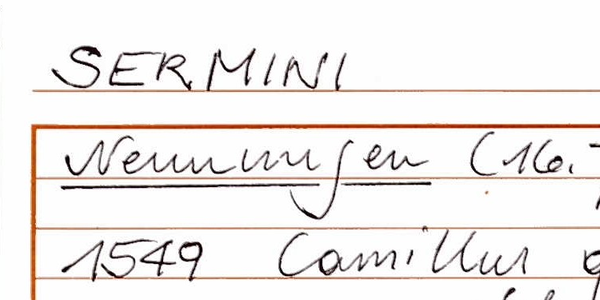 SERMINI
Nennungen (16.
1549 Camillus